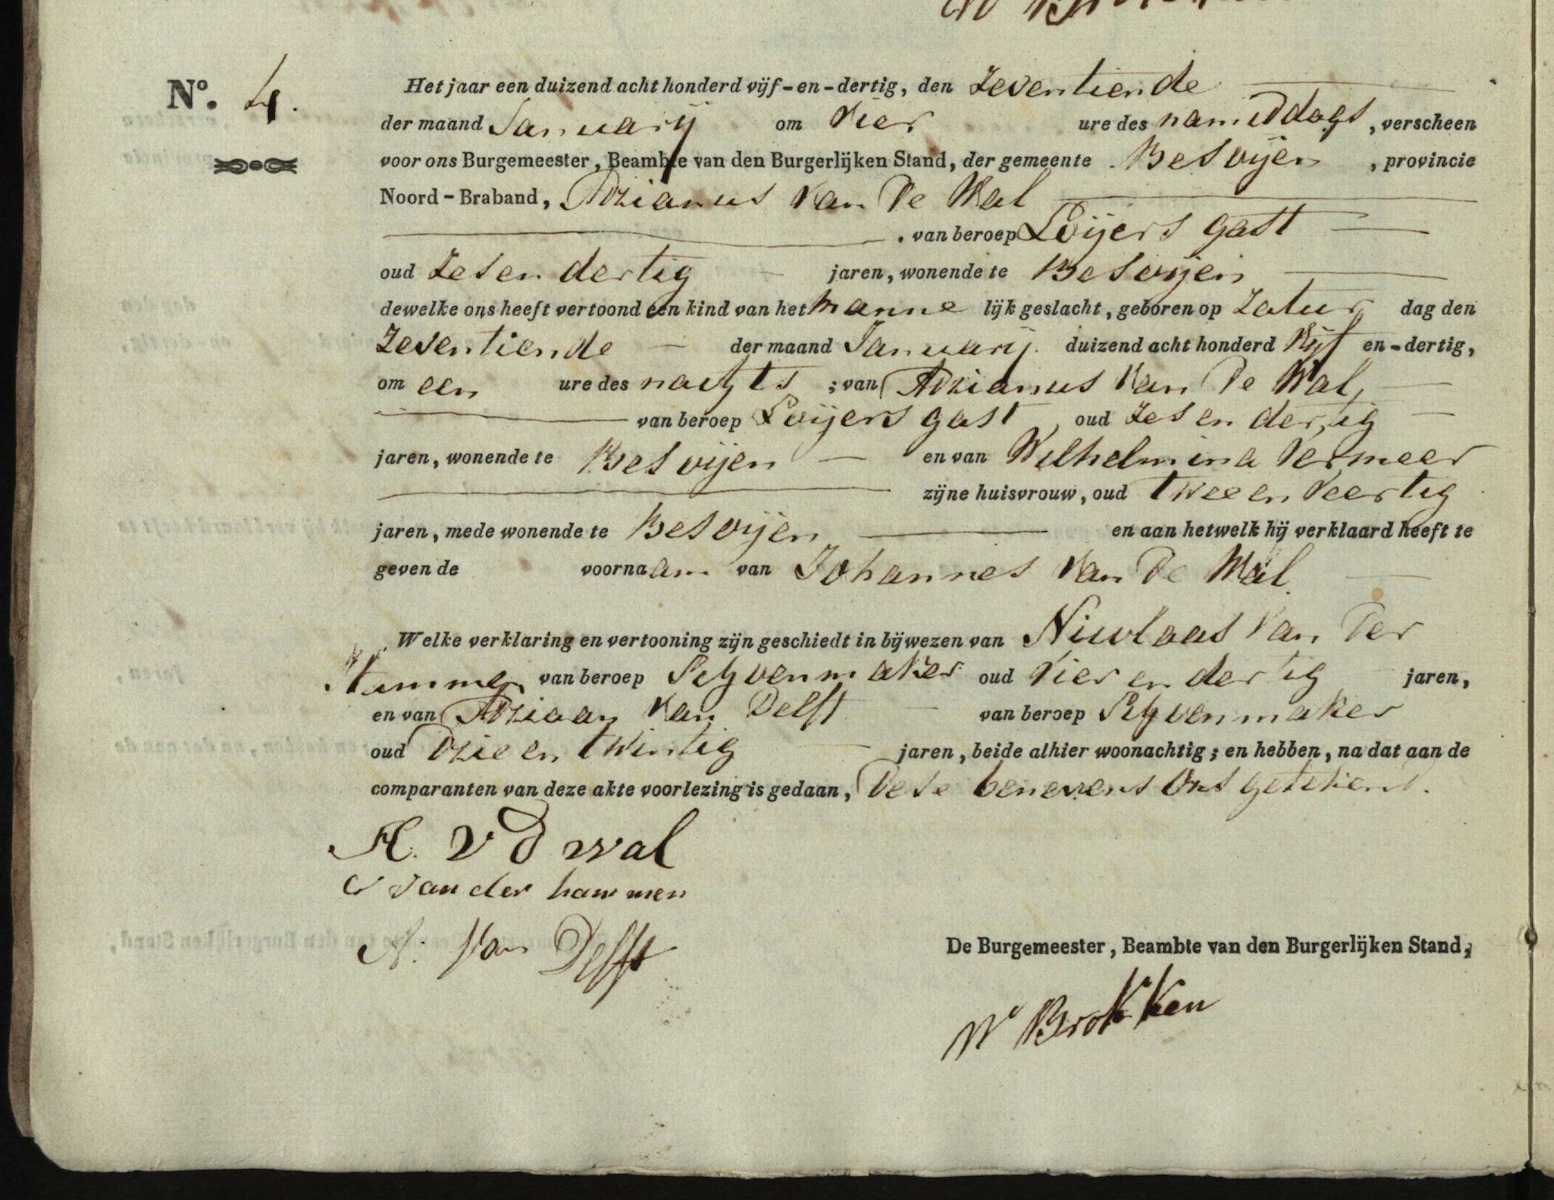 Nº. 4.
Het jaar een duizend acht honderd vijf-en-dertig, den Zeventiende
der maand Januarij om Vier ure des namiddags, verscheen
voor ons Burgemeester, Beambte van den Burgerlijken Stand, der gemeente Besoijen, provincie
Noord-Braband, Adrianus Van De Wal
, van beroep Loijers gast
oud Zes en dertig jaren, wonende te Besoijen
dewelke ons heeft vertoond een kind van het manne lijk geslacht, geboren op Zatur dag den
Zeventiende der maand Januarij duizend acht honderd Vijf en-dertig,
om een ure des nachts ; van Adrianus Van De Wal,
van beroep Loijers gast oud Zes en dertig
jaren, wonende te Besoijen en van Wilhelmina Vermeer
zijne huisvrouw, oud twee en Veertig
jaren, mede wonende te Besoijen en aan hetwelk hij verklaard heeft te
geven de voornaam van Johannes Van De Wal.
Welke verklaring en vertooning zijn geschiedt in bijwezen van Nicolaas Van Der
Hammen van beroep Schoenmaker oud Vier en dertig jaren,
en van Adriaan Van Delft van beroep Schoenmaker
oud Drie en twintig jaren, beide alhier woonachtig; en hebben, na dat aan de
comparanten van deze akte voorlezing is gedaan, Deze benevens Ons getekend.
A. v d wal
van der hammen
A. Van Delft
De Burgemeester, Beambte van den Burgerlijken Stand,
W Brokken